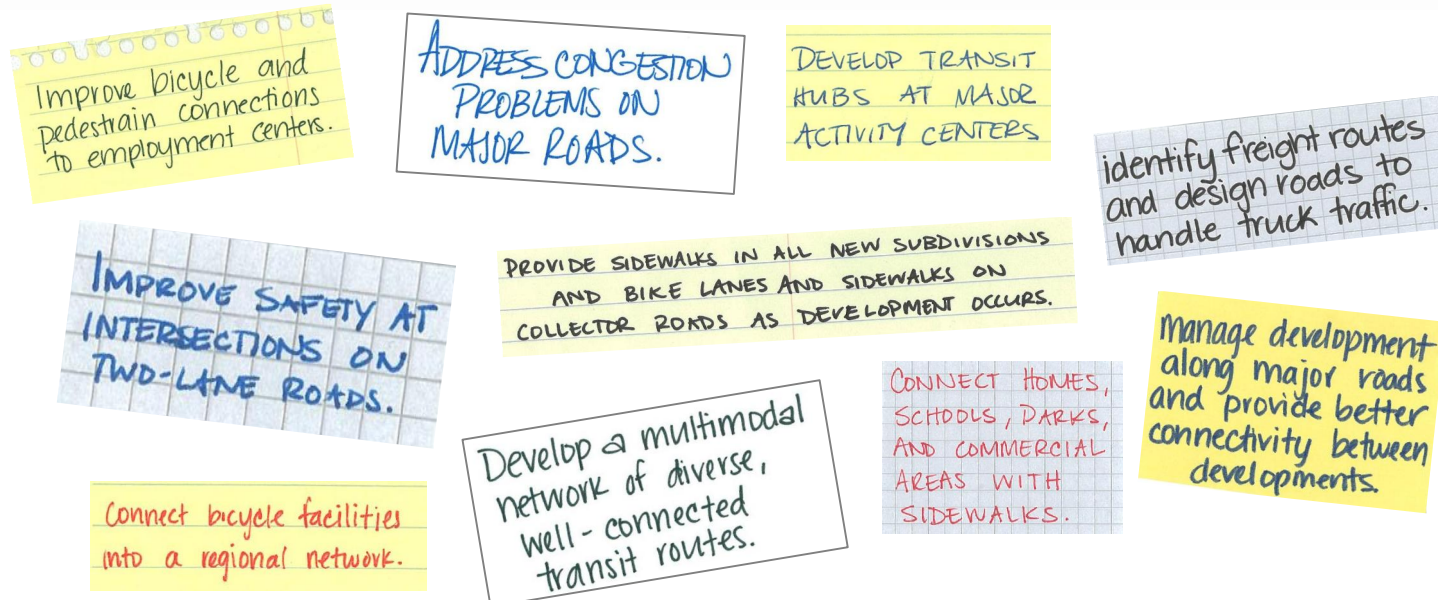 Improve bicycle and
pedestrain connections
to employment centers.
ADDRESS CONGESTION
PROBLEMS ON
MAJOR ROADS.
DEVELOP TRANSIT
HUBS AT MAJOR
ACTIVITY CENTERS
identify freight routes
and design roads to
handle truck traffic.
IMPROVE SAFETY AT
INTERSECTIONS ON
TWO-LANE ROADS.
PROVIDE SIDEWALKS IN ALL NEW SUBDIVISIONS
AND BIKE LANES AND SIDEWALKS ON
COLLECTOR ROADS AS DEVELOPMENT OCCURS.
manage development
along major roads
and provide better
connectivity between
developments.
CONNECT HOMES,
SCHOOLS, PARKS,
AND COMMERCIAL
AREAS WITH
SIDEWALKS.
Develop a multimodal
network of diverse,
well-connected
transit routes.
Connect bicycle facilities
into a regional network.